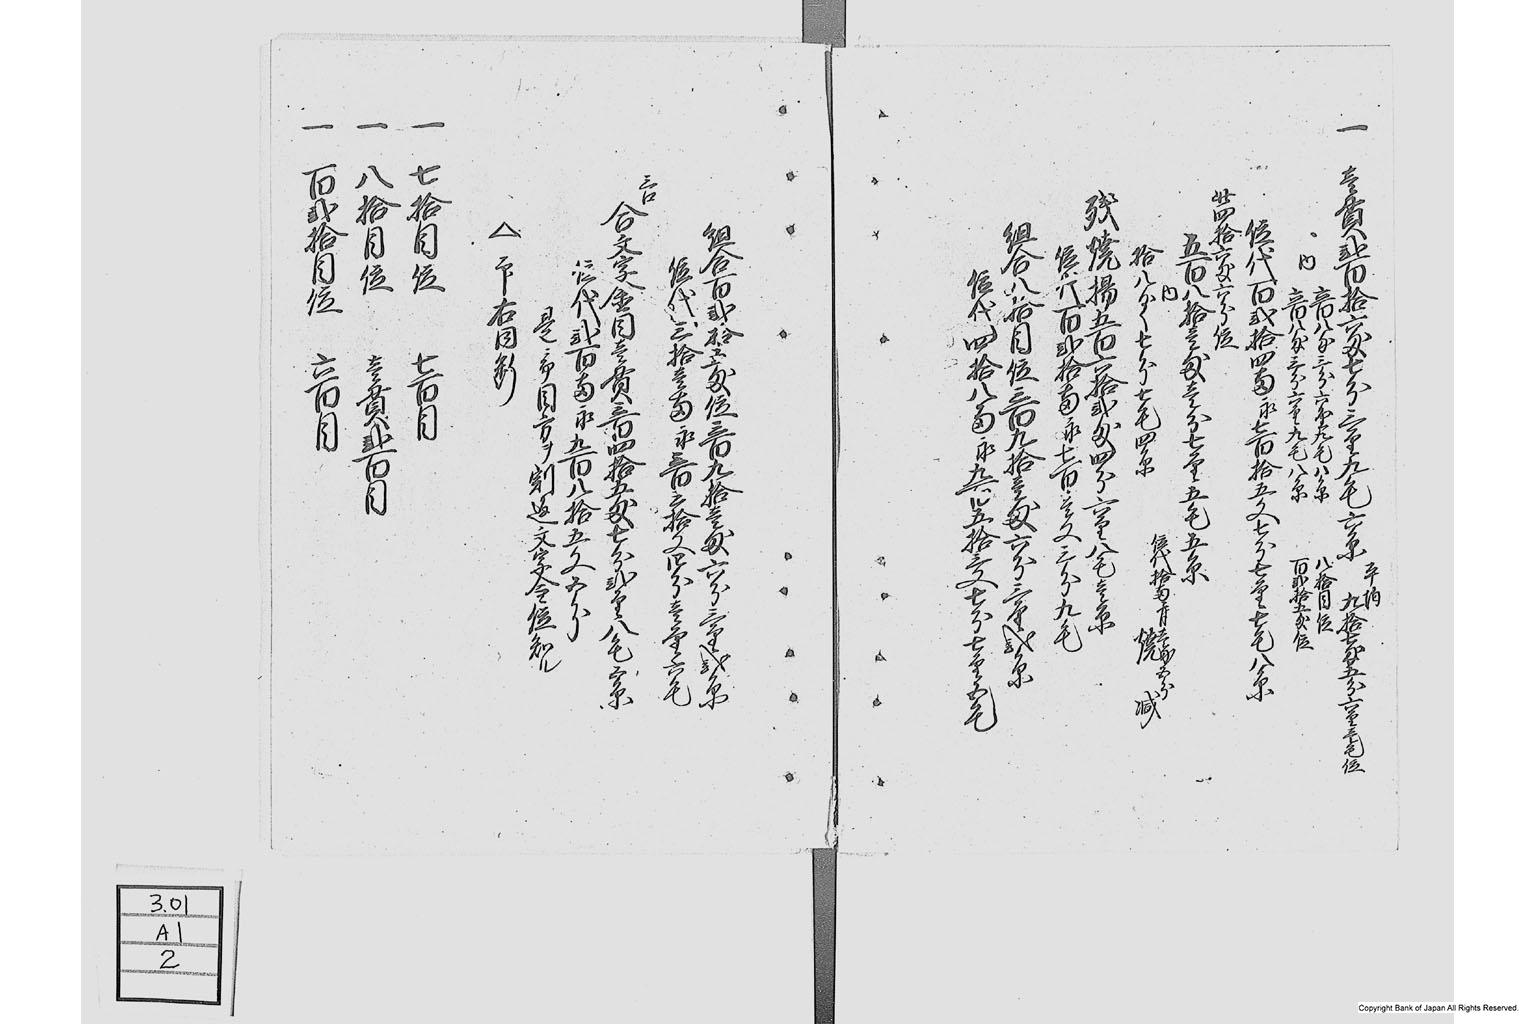 一 壱貫弐百拾六匁七分三厘九毛六糸 平均 九拾七匁五分六厘三毛位
内 三百八匁三分六厘九毛八糸 八拾目位
三百八匁三分六厘九毛八糸 百弐拾五匁位
位代百弐拾四両永七百拾五文七分七厘七毛八糸
廿四拾六匁六分位
五百八拾壱匁壱分七厘五毛五糸
内
拾八匁七分七毛四糸 焼減
残焼揚五百六拾弐匁四分六厘八毛壱糸
位代百弐拾両永七百壱文三分九毛
組合八拾目位三百九拾壱匁六分三厘弐糸
位代四拾八両永九百五拾三文七分七厘五毛
組合百弐拾五匁位三百九拾壱匁六分三厘弐糸
位代三拾壱両永三百三拾文四分壱厘六毛
三口
合文字金目壱貫三百四拾五匁七分弐厘八毛六糸
位代弐百両永九百八拾五文五分
是ニ而目方ヲ割返文字金位知ル
△印右同断
一 七拾目位 七百目
一 八拾目位 壱貫弐百目
一 百弐拾目位 六百目
3.01
A1
2
Copyright Bank of Japan All Rights Reserved.